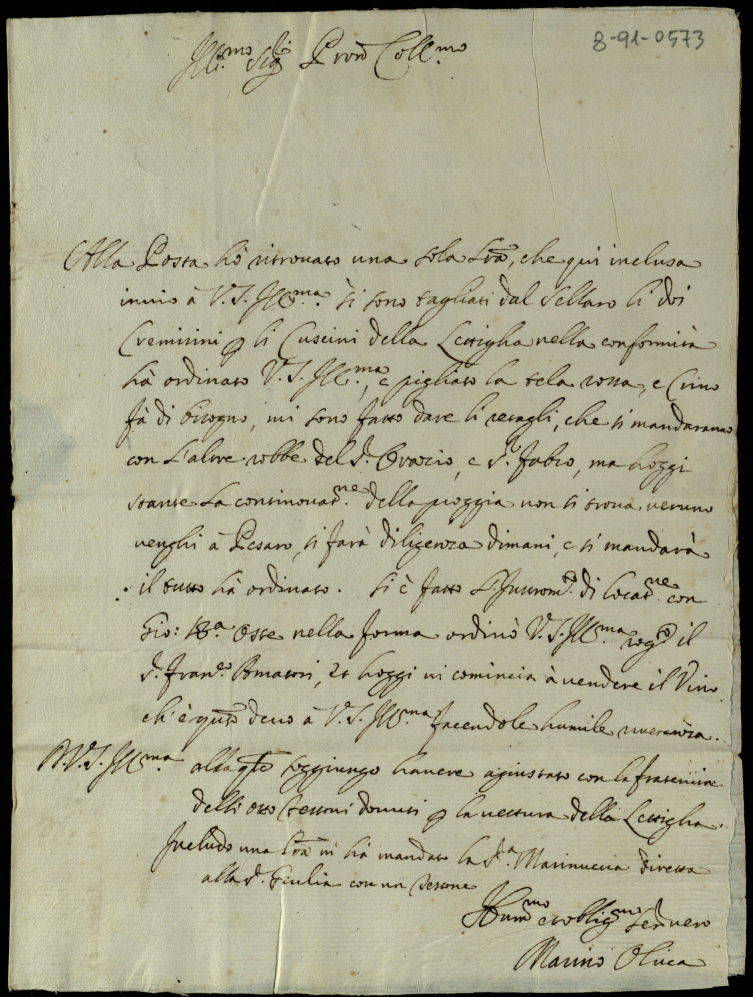 8-91-0573
Ill.mo Sig.r Pron Coll.mo
Alla Posta hò ritrovato una sola lra, che qui inclusa
invio à V.S. Ill.ma. Si sono tagliati dal Sellaro li doi
Cremisini p li Cuscini della Lettigha nella conformità
hà ordinato V.S. Ill.ma, e pigliato la tela rossa, e Crino
fà di bisogno, mi sono fatto dare li retagli, che si mandaranno
con l'altre robbe del S.r Oratio, e S.r Fabio, ma hoggi
stante la continovat.ne della pioggia non si trova veruno
venghi à Pesaro, si farà diligenza dimani, e si mandarà
il tutto hà ordinato. Si è fatto l'Instrom.to di locat.ne con
Gio: Ba Oste nella forma ordinò V.S. Ill.ma rog.to il
S. Fran.co Amatori, et hoggi vi comincia à vendere il Vino
ch'è qto devo à V.S. Ill.ma facendole humile riverenza.
D.V.S. Ill.ma alla qle soggiungo havere agiustato con la
delli otto testoni dovuti p la vettura della Lettigha.
Includo una lra mi hà mandato la S.ra Marinuccia diretta
alla S. Giulia con un testone
Hum.mo et oblig.mo ser.re vero
Marino Oliva